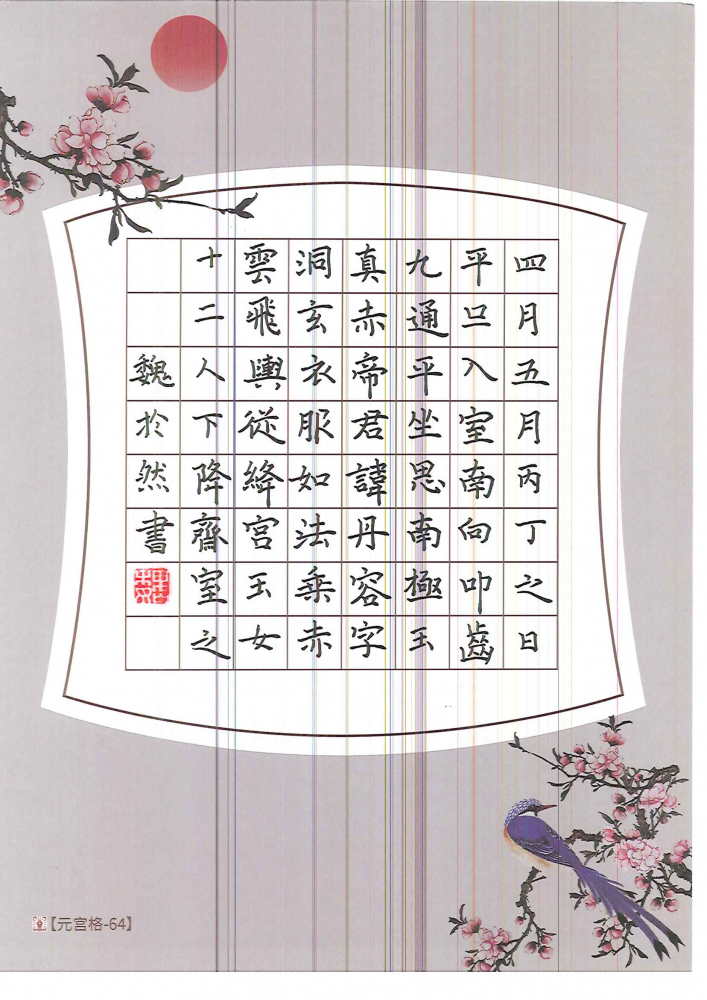 四月五月丙丁之日
平旦入室南向叩齒
九通平坐思南極玉
真赤帝君諱丹容字
洞玄衣服如法乘赤
雲飛輿從絳宮玉女
十二人下降齋室之
魏於然書
【元宫格-64】